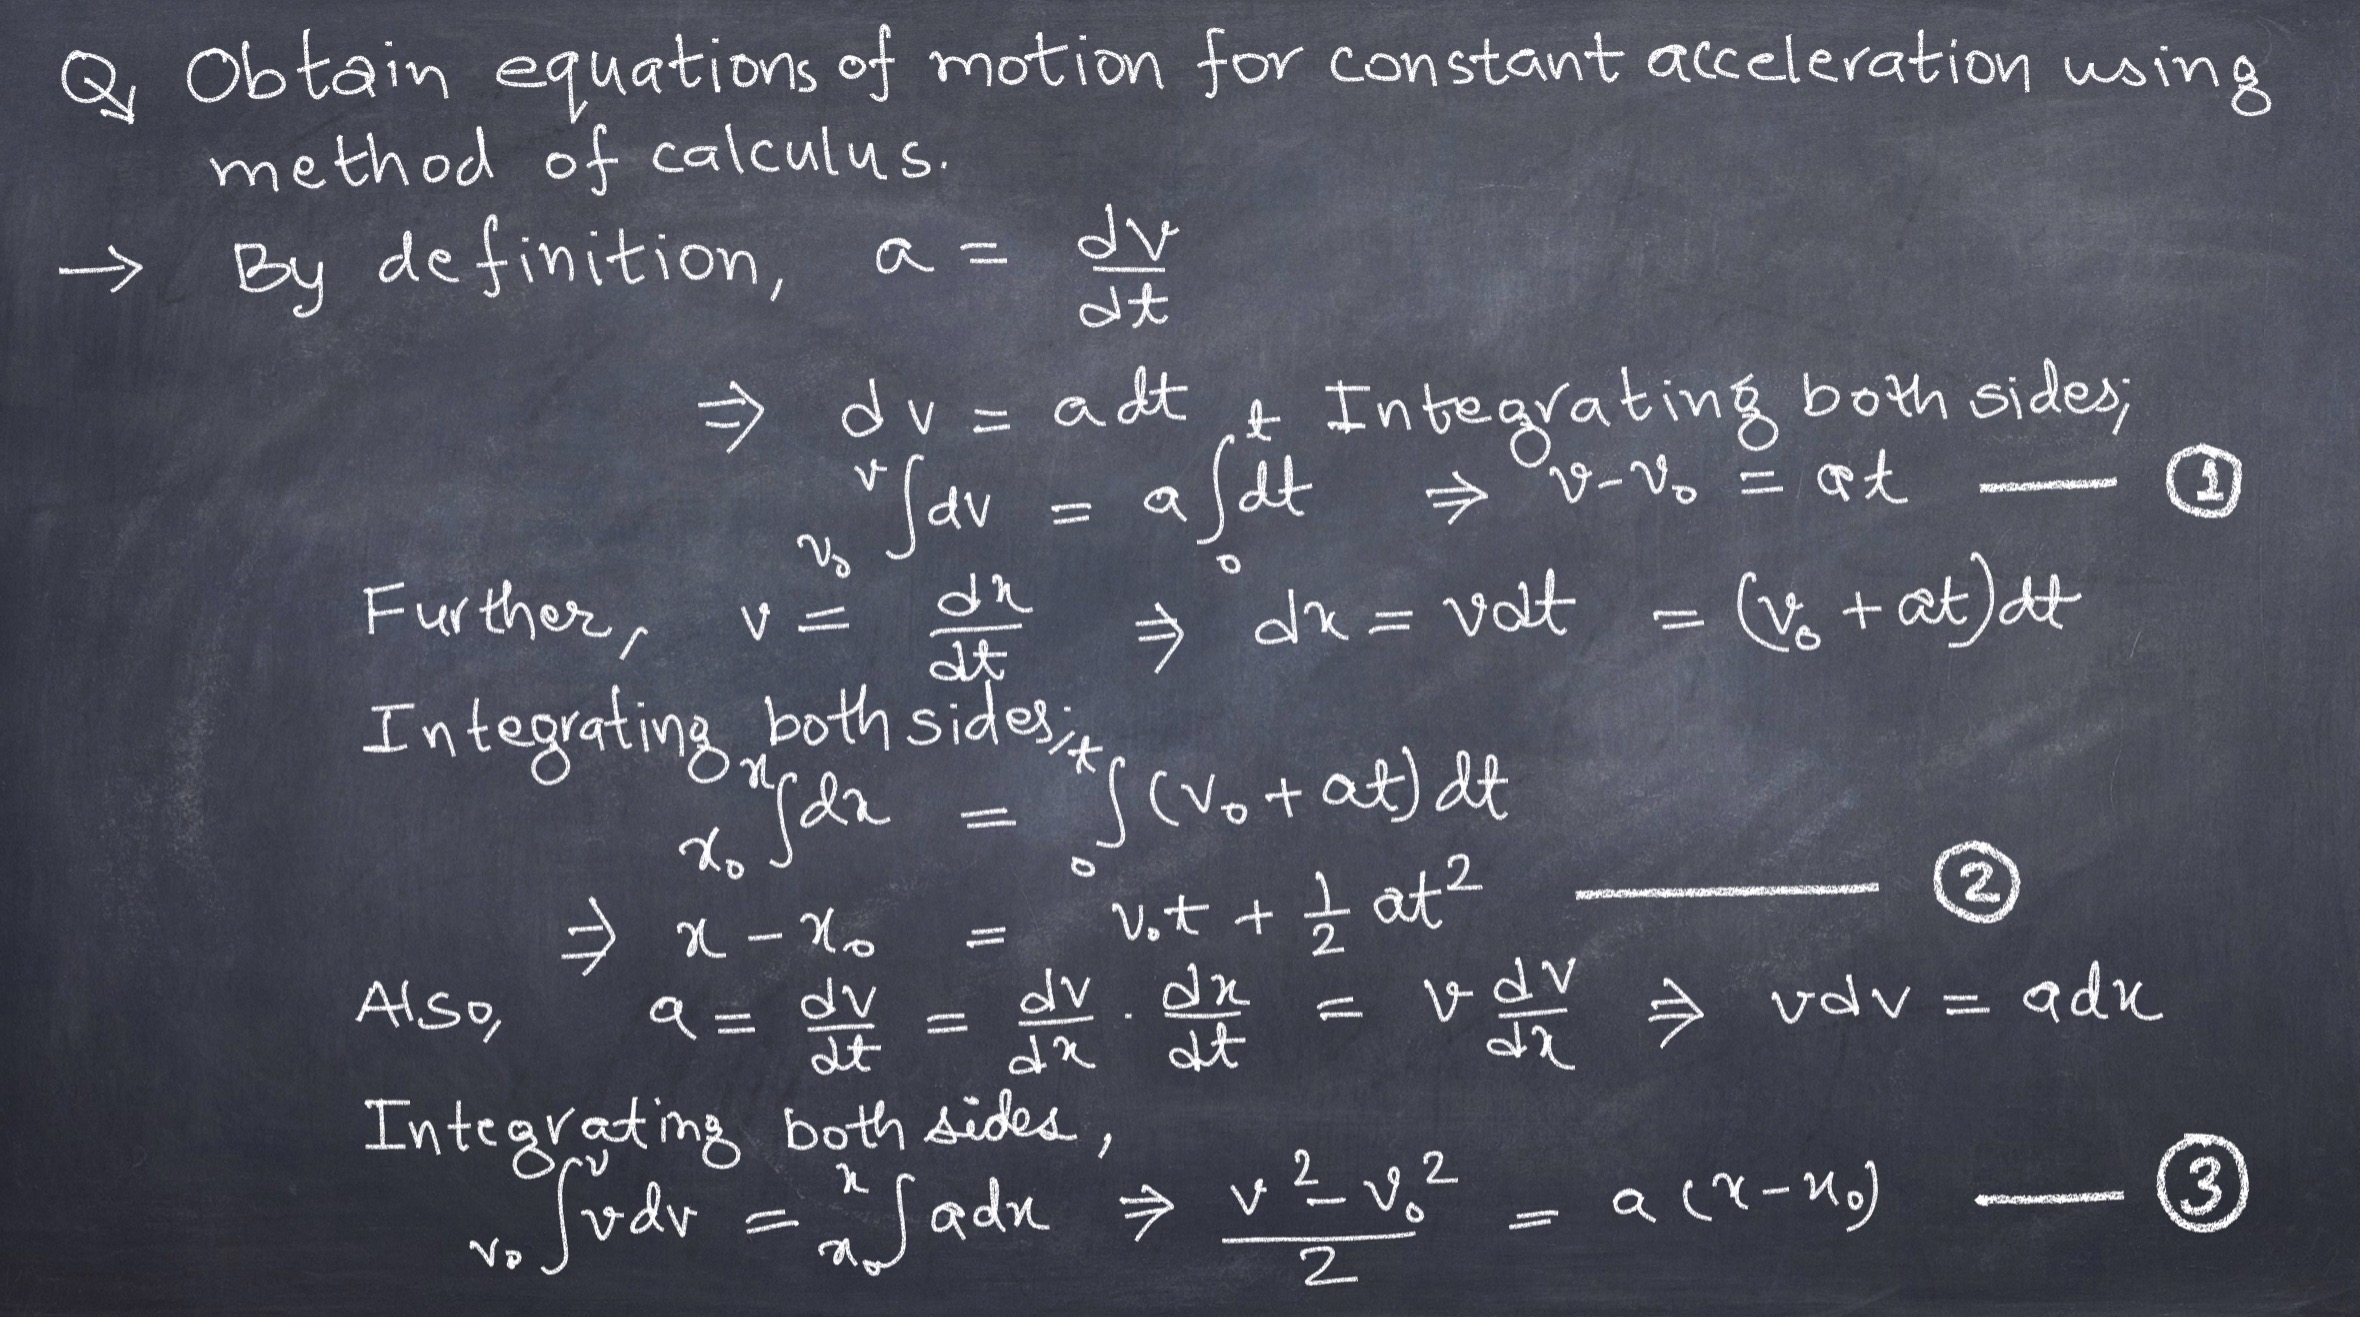 Q, Obtain equations of motion for constant acceleration using
method of calculus.
→ By definition, a = dv/dt
⇒ dv = adt, Integrating both sides;
∫_{v₀}^{v} dv = a∫_{0}^{t} dt ⇒ v-v₀ = at — ①
Further, v = dx/dt ⇒ dx = vdt = (v₀ + at)dt
Integrating both sides;
∫_{x₀}^{x} dx = ∫_{0}^{t} (v₀+at)dt
⇒ x - x₀ = v₀t + ½ at² — ②
Also, a = dv/dt = dv/dx · dx/dt = v dv/dx ⇒ vdv = adx
Integrating both sides,
∫_{v₀}^{v} vdv = ∫_{x₀}^{x} adx ⇒ (v² - v₀²)/2 = a(x-x₀) — ③